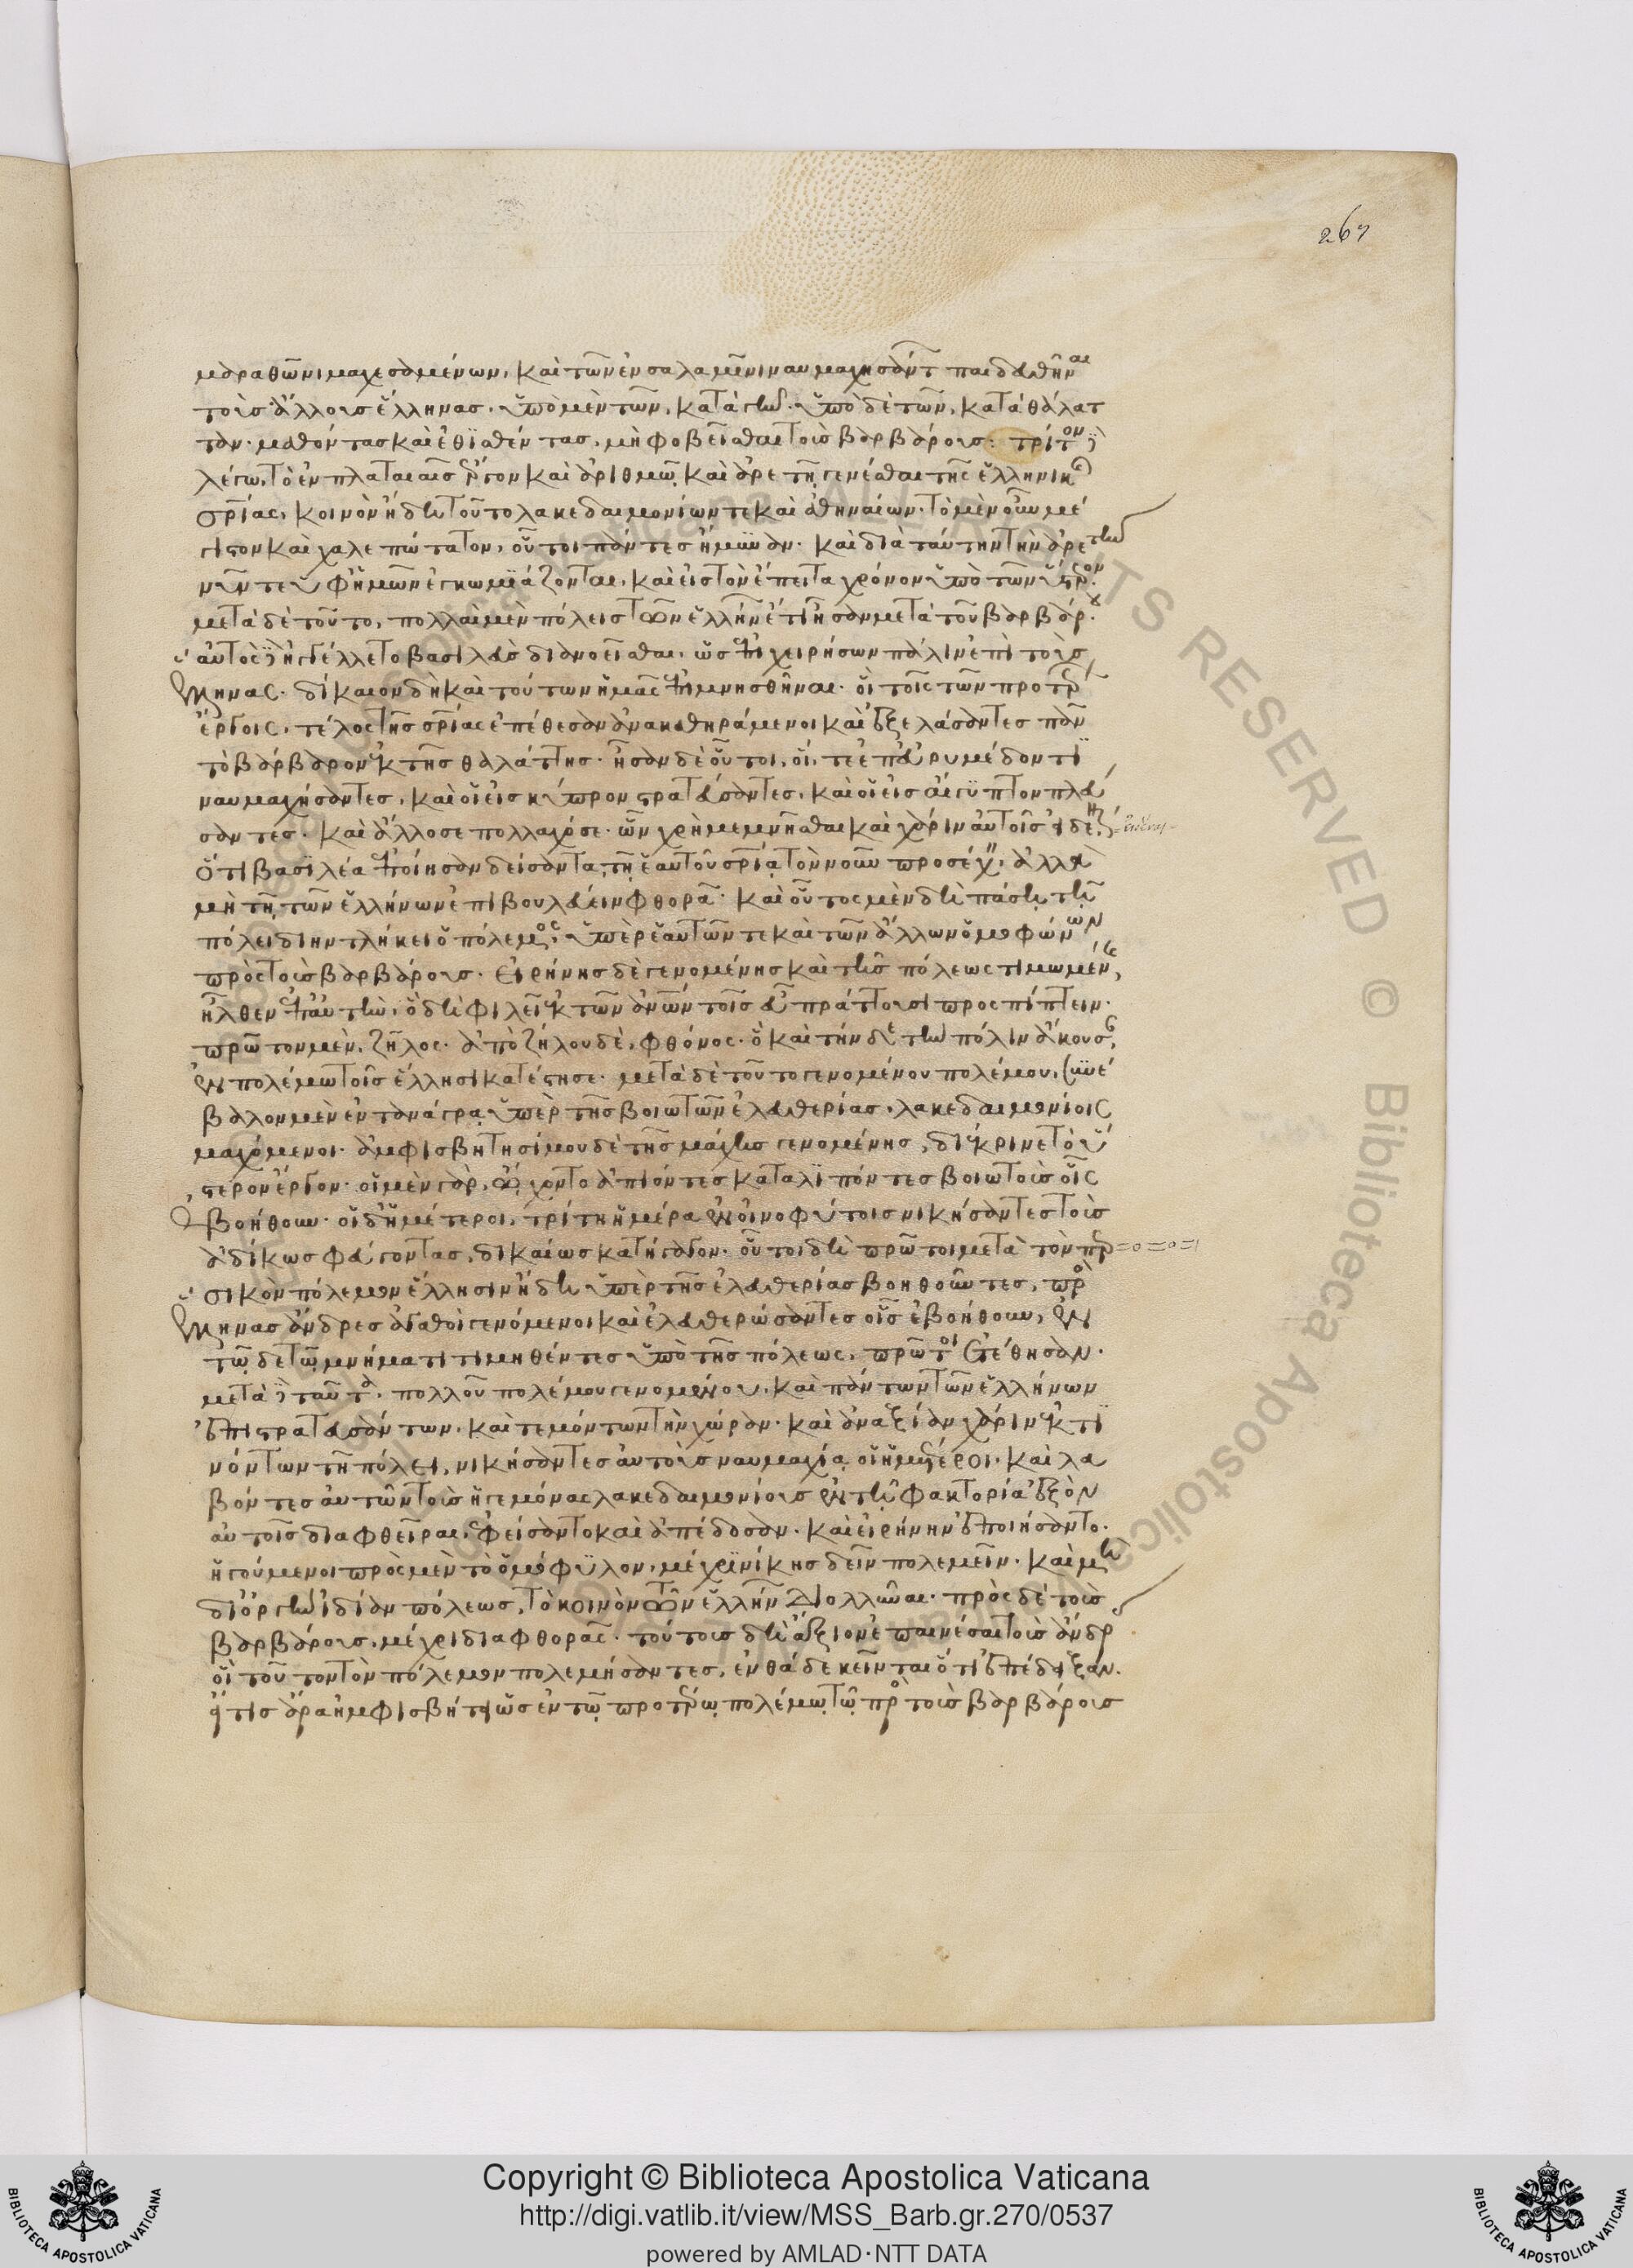 267
μαραθῶνι μαχεσαμένων, καὶ τῶν ἐν σαλαμῖνι ναυμαχησάντ παιδευθῆναι
τοὺς ἄλλους ἕλληνας. ὑπὸ μὲν τῶν, κατὰ γῆν. ὑπὸ δὲ τῶν, κατὰ θάλατ
ταν. μαθόντας καὶ ἐθισθέντας, μὴ φοβεῖσθαι τοὺς βαρβάρους. τρίτον δὲ
λέγω, τὸ ἐν πλαταιαῖς ἔργον καὶ ἀριθμῷ καὶ ἀρετῇ γενέσθαι τῆς ἑλληνικῆς
σρίας, κοινὸν ἤδη τοῦτο λακεδαιμονίων τε καὶ ἀθηναίων. τὸ μὲν οὖν μέ
γιστον καὶ χαλεπώτατον, οὗτοι πάντες ἤμυναν. καὶ διὰ ταύτην τὴν ἀρετὴν
νῦν τε ὑφ' ἡμῶν ἐγκωμιάζονται, καὶ εἰς τὸν ἔπειτα χρόνον ὑπὸ τῶν ὕστερον.
μετὰ δὲ τοῦτο, πολλαὶ μὲν πόλεις τῶν ἑλλήν ἔτι ἦσαν μετὰ τοῦ βαρβάρου.
αὐτὸς δὲ ἠγγέλλετο βασιλεὺς διανοεῖσθαι, ὡς ἐπιχειρήσων πάλιν ἐπὶ τοὺς
ἕλληνας. δίκαιον δὴ καὶ τούτων ἡμᾶς ἐπιμνησθῆναι. οἳ τοῖς τῶν προτέρ
ἔργοις, τέλος τῆς σρίας ἐπέθεσαν ἀνακαθηράμενοι καὶ ἐξελάσαντες πᾶν
τὸ βάρβαρον ἐκ τῆς θαλάττης. ἦσαν δὲ οὗτοι, οἵ, τε ἐπ' εὐρυμέδοντι
ναυμαχήσαντες, καὶ οἱ εἰς κύπρον στρατεύσαντες, καὶ οἱ εἰς αἴγυπτον πλεύ
σαντες. καὶ ἄλλοσε πολλαχόσε. ὧν χρὴ μεμνῆσθαι καὶ χάριν αὐτοῖς
ὅτι βασιλέα ἐποίησαν δείσαντα, τῇ ἑαυτοῦ σρίᾳ τὸν νοῦν προσέχειν, ἀλλὰ
μὴ τῇ τῶν ἑλλήνων ἐπιβουλεύειν φθορᾷ. καὶ οὗτος μὲν δὴ πάσῃ τῇ
πόλει διηντλήκει ὁ πόλεμος, ὑπὲρ ἑαυτῶν τε καὶ τῶν ἄλλων ὁμοφώνων
πρὸς τοὺς βαρβάρους. εἰρήνης δὲ γενομένης καὶ τῆς πόλεως τιμωμένης,
ἦλθεν ἐπ' αὐτὴν, ὃ δὴ φιλεῖ ἐκ τῶν ἀνῶν τοῖς εὖ πράττουσι προσπίπτειν.
πρῶτον μὲν, ζῆλος. ἀπὸ ζήλου δὲ, φθόνος. ὃ καὶ τήνδε τὴν πόλιν ἄκουσαν
ἐν πολέμῳ τοῖς ἕλλησι κατέστησε. μετὰ δὲ τοῦτο γενομένου πολέμου, συνέ
βαλον μὲν ἐν τανάγρᾳ ὑπὲρ τῆς βοιωτῶν ἐλευθερίας, λακεδαιμονίοις
μαχόμενοι. ἀμφισβητησίμου δὲ τῆς μάχης γενομένης, διέκρινε τὸ ὕ
στερον ἔργον. οἱ μὲν γὰρ, ᾤχοντο ἀπιόντες καταλιπόντες βοιωτοὺς οἷς
ἐβοήθουν. οἱ δ' ἡμέτεροι, τρίτῃ ἡμέρᾳ ἐν οἰνοφύτοις νικήσαντες τοὺς
ἀδίκως φεύγοντας, δικαίως κατήγαγον. οὗτοι δὴ πρῶτοι μετὰ τὸν περ
σικὸν πόλεμον ἕλλησιν ἤδη ὑπὲρ τῆς ἐλευθερίας βοηθοῦντες, πρὸς
ἕλληνας ἄνδρες ἀγαθοὶ γενόμενοι καὶ ἐλευθερώσαντες οἷς ἐβοήθουν, ἐν
τῷδε τῷ μνήματι τιμηθέντες ὑπὸ τῆς πόλεως, πρῶτοι ἐτέθησαν.
μετὰ δὲ ταῦτα, πολλοῦ πολέμου γενομένου, καὶ πάντων τῶν ἑλλήνων
ἐπιστρατευσάντων, καὶ τεμόντων τὴν χώραν. καὶ ἀναξίαν χάριν ἐκτι
νόντων τῇ πόλει, νικήσαντες αὐτοὺς ναυμαχίᾳ οἱ ἡμέτεροι. καὶ λα
βόντες αὐτῶν τοὺς ἡγεμόνας λακεδαιμονίους ἐν τῇ σφακτορίᾳ ἐξὸν
αὐτοῖς διαφθεῖραι, ἐφείσαντο καὶ ἀπέδοσαν. καὶ εἰρήνην ἐποιήσαντο.
ἡγούμενοι πρὸς μὲν τὸ ὁμόφυλον, μέχρι νίκης δεῖν πολεμεῖν. καὶ μὴ
δι' ὀργὴν ἰδίαν πόλεως, τὸ κοινὸν τῶν ἑλλήν διολλύναι. πρὸς δὲ τοὺς
βαρβάρους, μέχρι διαφθορᾶς. τούτους δὴ ἄξιον ἐπαινέσαι τοὺς ἄνδρ
οἳ τοῦτον τὸν πόλεμον πολεμήσαντες, ἐνθάδε κεῖνται ὅτι ἐπέδειξαν.
εἴ τις ἄρα ἠμφισβήτει ὡς ἐν τῷ προτέρῳ πολέμῳ τῷ πρὸς τοὺς βαρβάρους
Copyright © Biblioteca Apostolica Vaticana
http://digi.vatlib.it/view/MSS_Barb.gr.270/0537
powered by AMLAD·NTT DATA